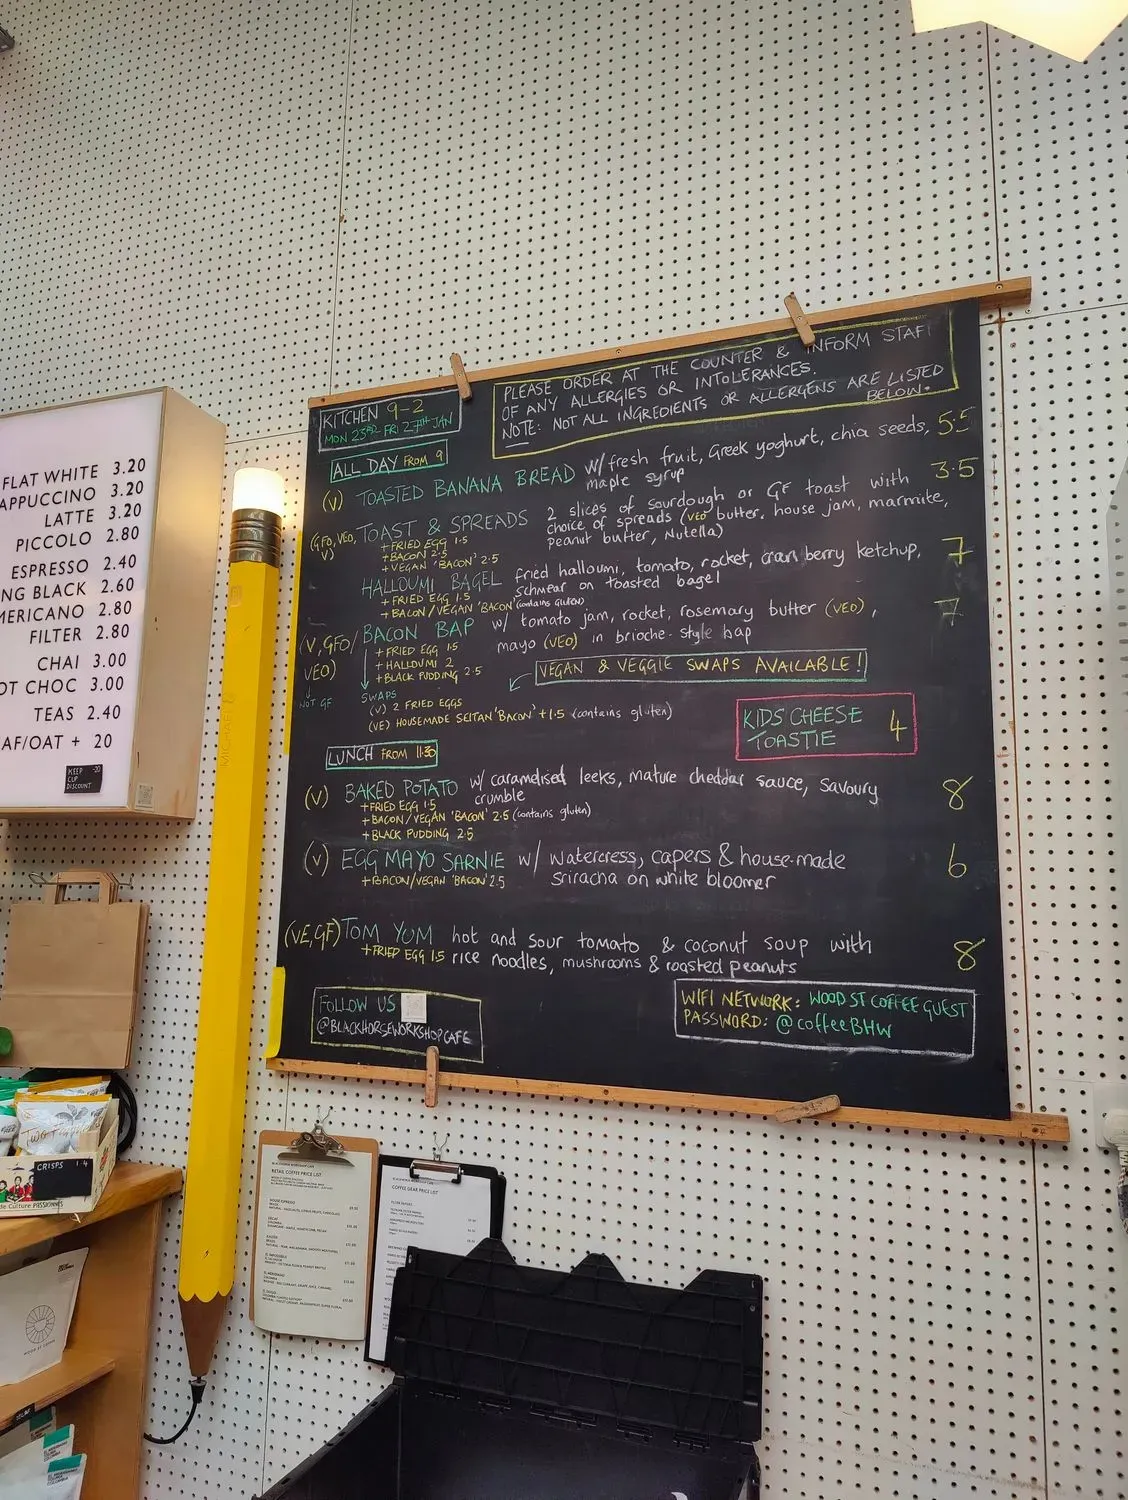 KITCHEN 9-2
MON 23RD FRI 27TH JAN
PLEASE ORDER AT THE COUNTER & INFORM STAFF
OF ANY ALLERGIES OR INTOLERANCES.
NOTE: NOT ALL INGREDIENTS OR ALLERGENS ARE LISTED
BELOW.
ALL DAY FROM 9
(V) TOASTED BANANA BREAD w/ fresh fruit, Greek yoghurt, chia seeds, 5.5
maple syrup
(GFO, VEO, V) TOAST & SPREADS 2 slices of sourdough or GF toast with 3.5
choice of spreads (VEO butter, house jam, marmite,
peanut butter, Nutella)
+ FRIED EGG 1.5
+ BACON 2.5
+ VEGAN 'BACON' 2.5
HALLOUMI BAGEL fried halloumi, tomato, rocket, cranberry ketchup, 7
schmear on toasted bagel
+ FRIED EGG 1.5
+ BACON/VEGAN 'BACON' (contains gluten)
(V, GFO/ VEO) BACON BAP w/ tomato jam, rocket, rosemary butter (VEO), 7
mayo (VEO) in brioche-style bap
+ FRIED EGG 1.5
+ HALLOUMI 2
+ BLACK PUDDING 2.5
NOT GF
VEGAN & VEGGIE SWAPS AVAILABLE!
SWAPS
(V) 2 FRIED EGGS
(VE) HOUSEMADE SEITAN 'BACON' +1.5 (contains gluten)
KIDS CHEESE
TOASTIE 4
LUNCH FROM 11:30
(V) BAKED POTATO w/ caramelised leeks, mature cheddar sauce, savoury 8
crumble
+ FRIED EGG 1.5
+ BACON/VEGAN 'BACON' 2.5 (contains gluten)
+ BLACK PUDDING 2.5
(V) EGG MAYO SARNIE w/ watercress, capers & house-made 6
sriracha on white bloomer
+ BACON/VEGAN 'BACON' 2.5
(VE, GF) TOM YUM hot and sour tomato & coconut soup with 8
rice noodles, mushrooms & roasted peanuts
+ FRIED EGG 1.5
FOLLOW US
@BLACKHORSEWORKSHOPCAFE
WIFI NETWORK: WOOD ST COFFEE GUEST
PASSWORD: @coffeeBHW
FLAT WHITE 3.20
APPUCCINO 3.20
LATTE 3.20
PICCOLO 2.80
ESPRESSO 2.40
NG BLACK 2.60
MERICANO 2.80
FILTER 2.80
CHAI 3.00
OT CHOC 3.00
TEAS 2.40
AF/OAT + 20
KEEP
CUP
DISCOUNT
MICHAEL
CRISPS 1.4
RETAIL COFFEE PRICE LIST
COFFEE GEAR PRICE LIST